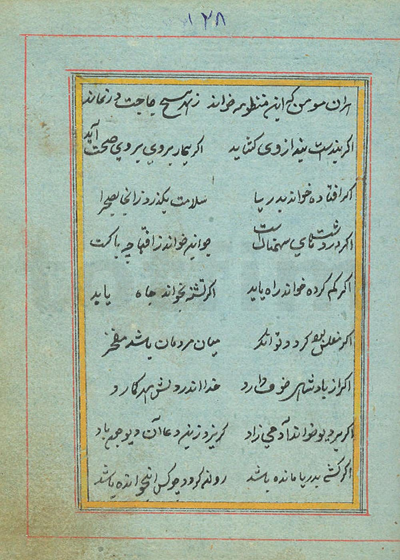 ۱۲۸
هران مومن که این منظومه خواند ز هیچ حاجت در نماند
اگر بندست بند از وی کشاید اگر بیمار بروی بروی صحت آید
اگر افتاده خواند بدریا سلامت بگذرد زانی بصحرا
اگر در دشت
جو این خواند ز افتها چه باکست
اگر کم کرده خواند راه یابد اگر تشنه بخواند جاه یابد
اگر مفلس بود کردد توانکر میان مردمان باشد مفخر
اگر از پادشاهی خوف دارد خدا اندر دلش مهر کارد
اگر بر دیو خواند آدمی زاد کریزد زین دعا آن دیو چون باد
اگر کشتی بدریا مانده باشد روانه کردد چو کس این خوانده باشد